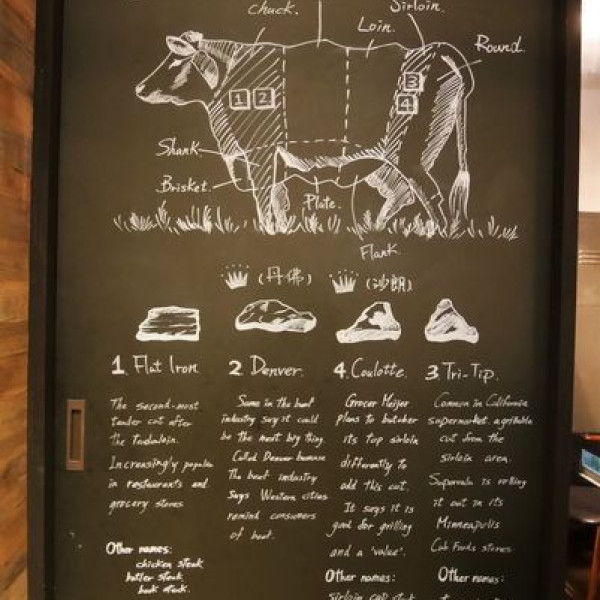 Chuck.
Sirloin.
Loin.
Round.
1 2
3
4
Shank.
Brisket.
Plate.
Flank.
(丹佛) (沙朗)
1. Flat Iron
The second-most
tender cut after
the
Increasingly popular
in restaurants and
grocery stores
Other names:
chicken steak
butler steak
steak.
2 Denver.
Some in the beef
industry say it could
be the most big thing.
Called Denver
The beef industry
says Western cities
remind consumers
of beef.
4. Coulotte.
Grocer Meijer
plans to butcher
its top sirloin
differently to
add this cut.
It says it is
good for grilling
and a 'value'.
Other names:
sirloin cap steak
3. Tri-Tip.
Common in California
supermarket. a grillable
cut from the
sirloin area.
Supervalu is rolling
it out in its
Minneapolis
Cub Foods stores
Other names: